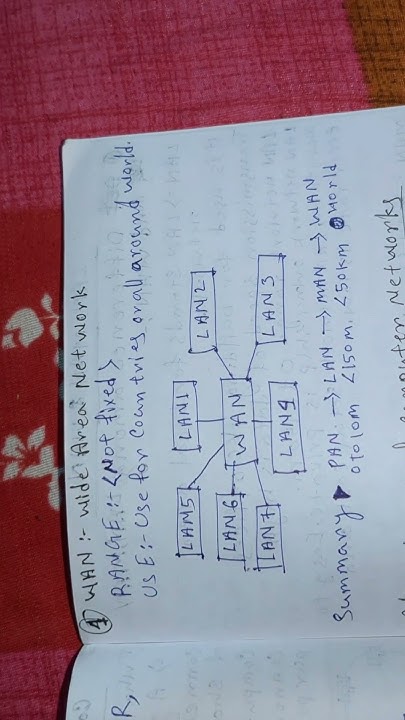 ④ WAN :- Wide Area Network
RANGE :- <Not fixed>
USE :- Use for Countries or all around world.
LAN5 LAN1 LAN2
LAN6 WAN
LAN7 LAN4 LAN3
Summary ▶ PAN → LAN → MAN → WAN
0 to 10m <150m <50km world
Computer Networks
R,